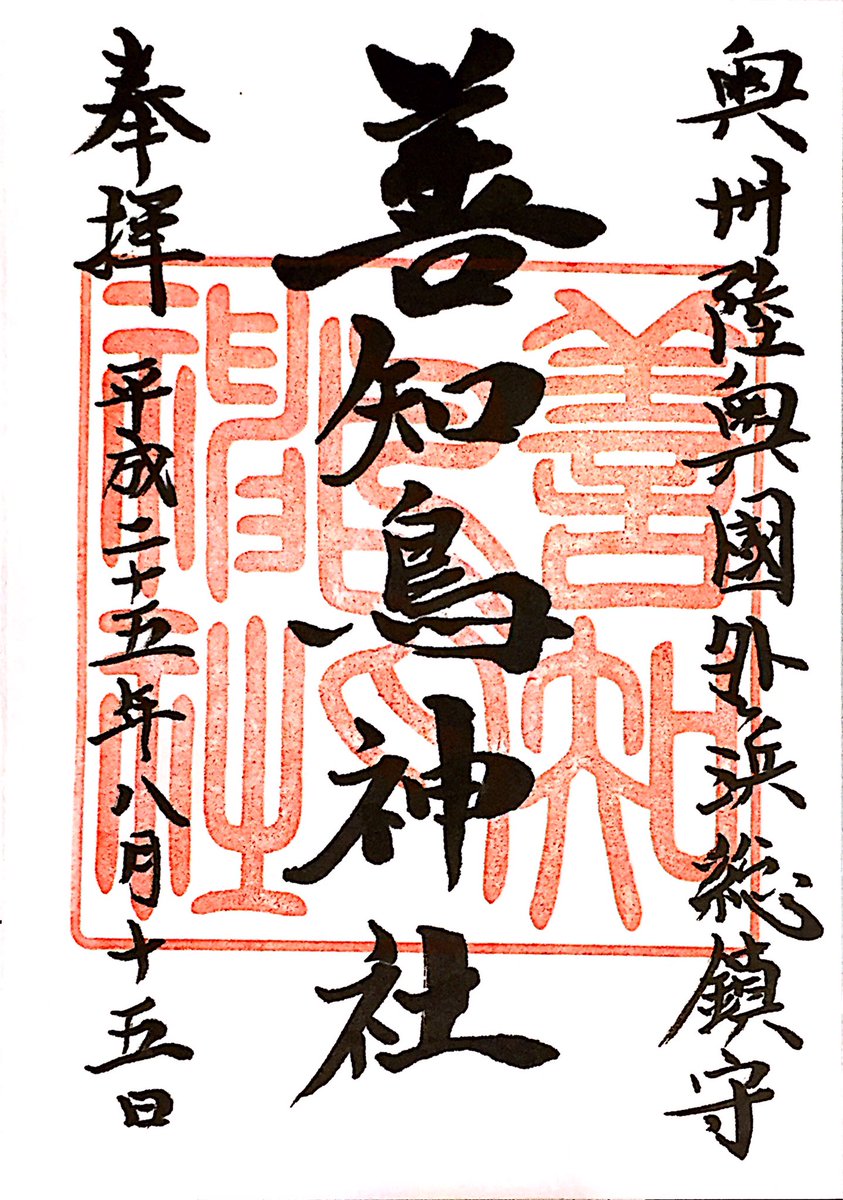 奥州陸奥國外浜総鎮守
善知鳥神社
奉拝 平成二十五年八月十五日
善知鳥神社